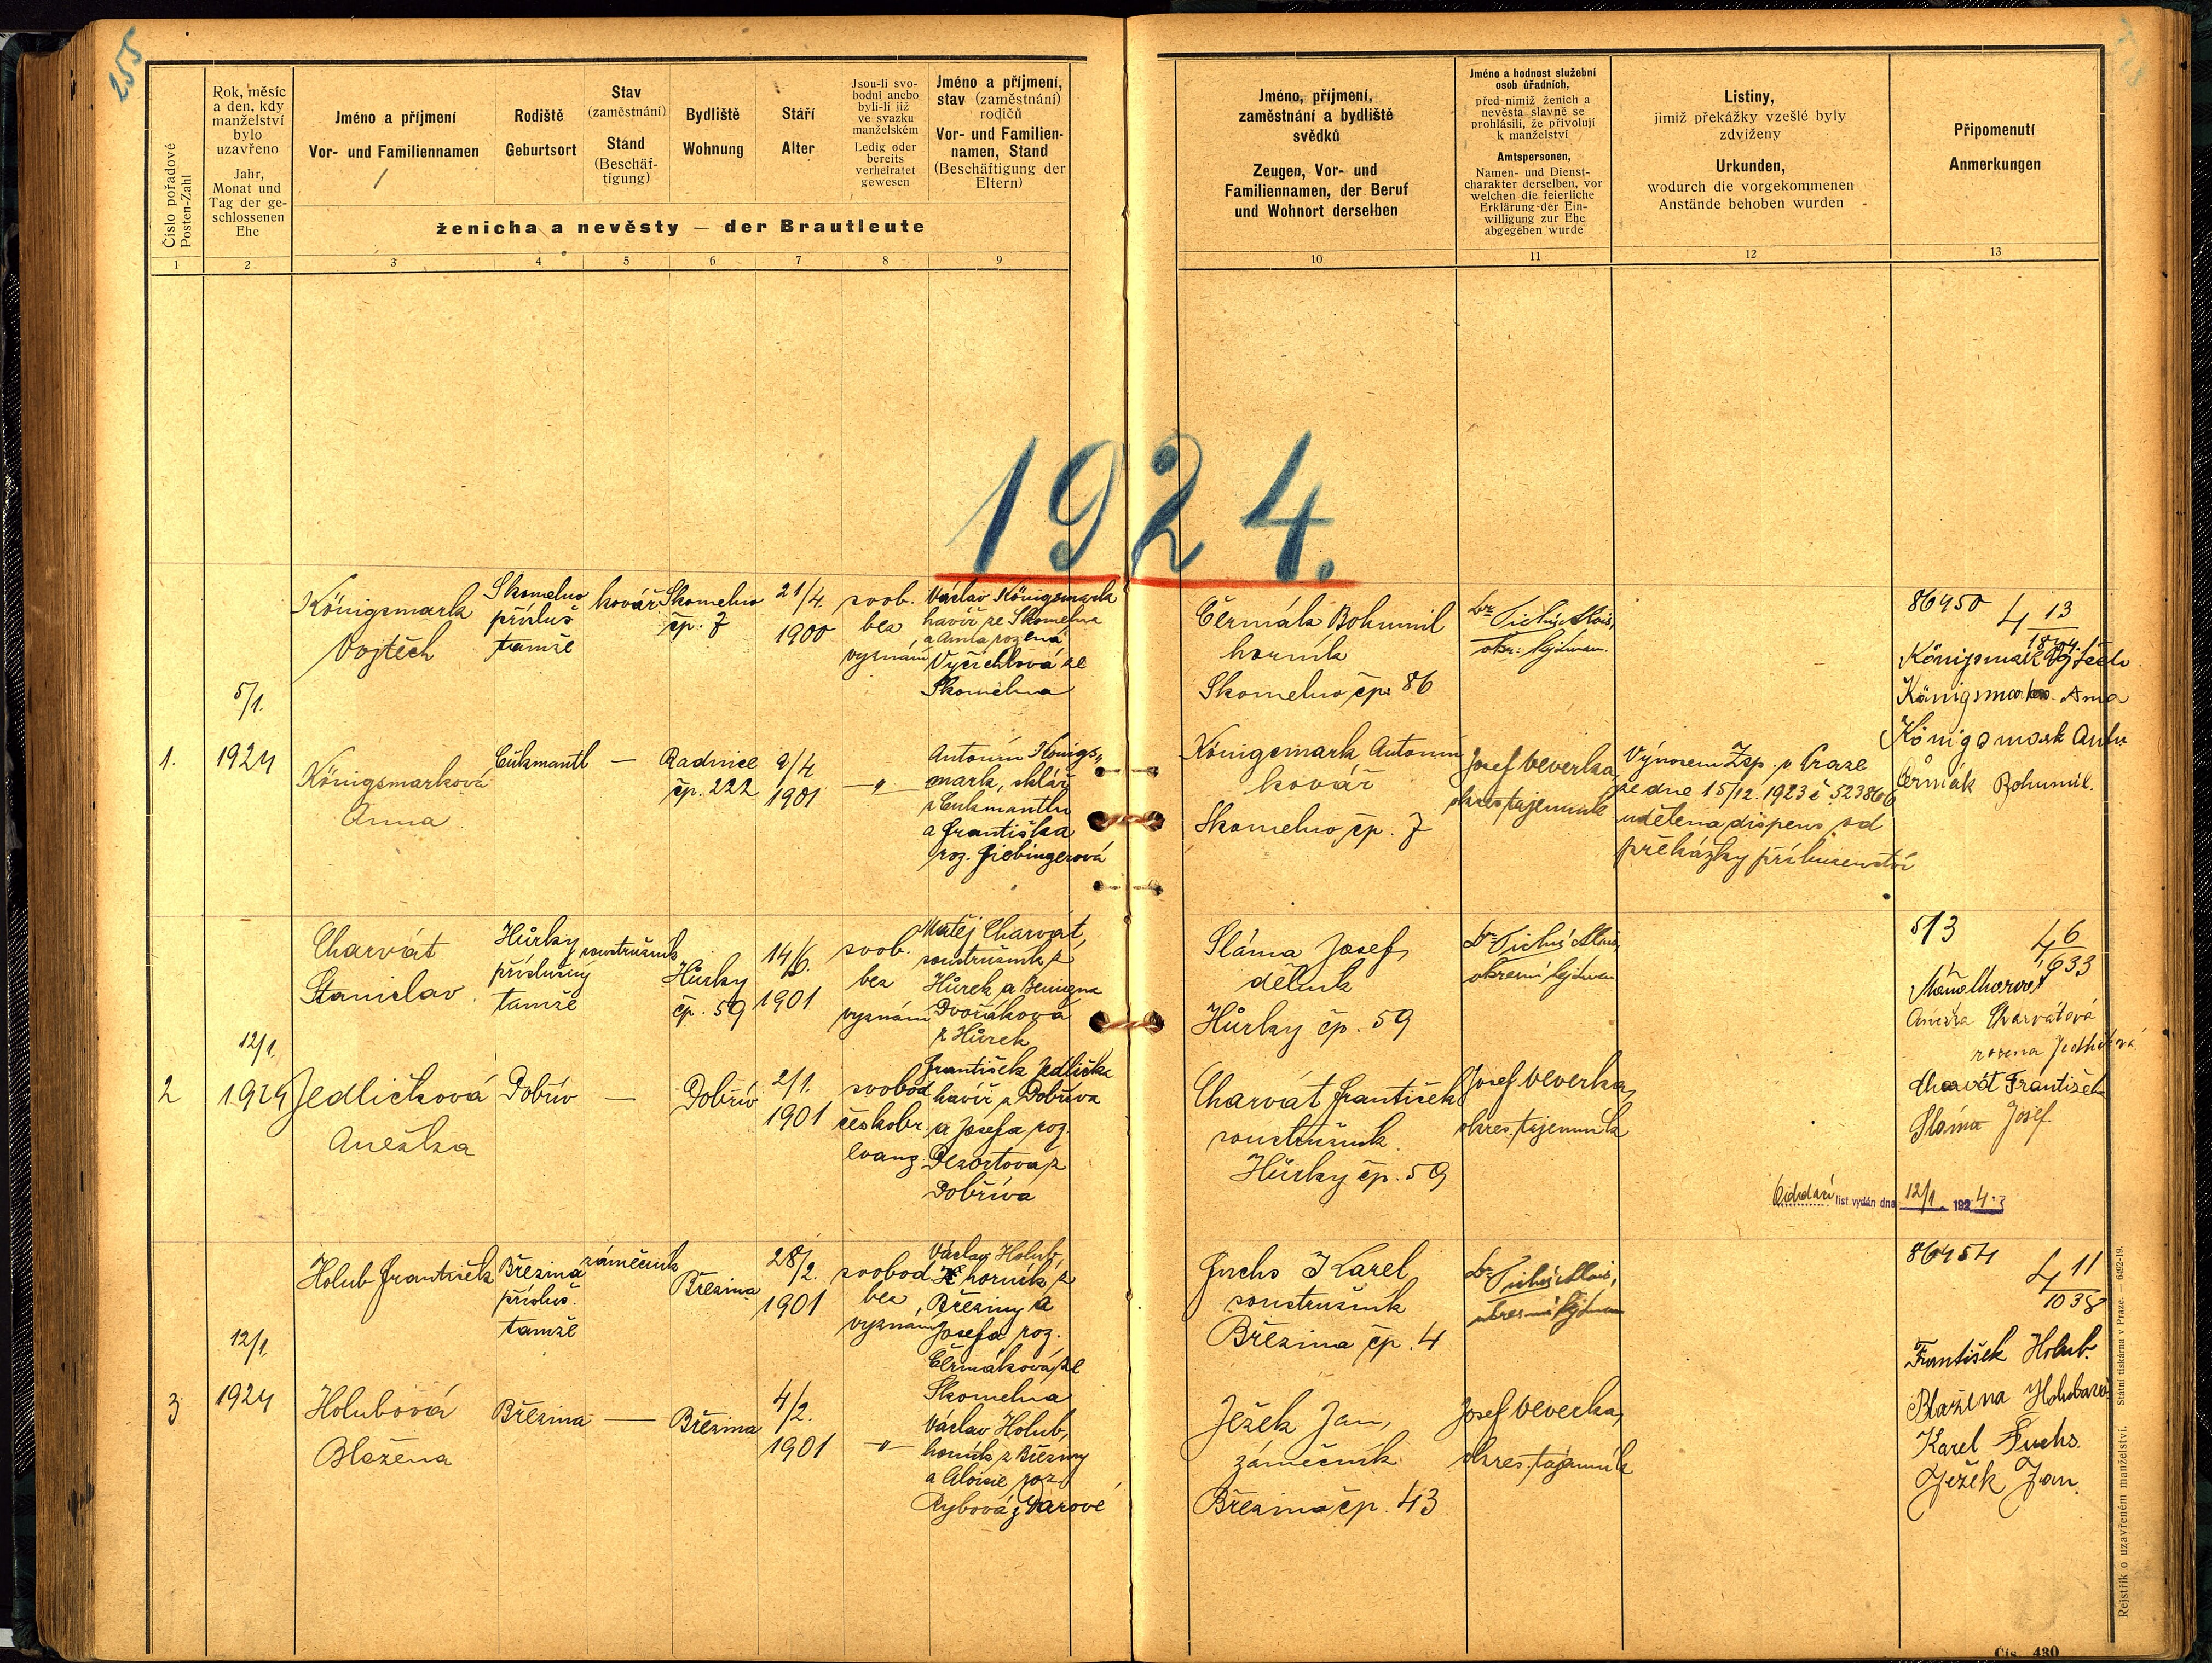 255
Číslo pořadové
Posten-Zahl
Rok, měsíc
a den, kdy
manželství
bylo
uzavřeno
Jahr,
Monat und
Tag der ge-
schlossenen
Ehe
Jméno a příjmení
Vor- und Familiennamen
Rodiště
Geburtsort
Stav
(zaměstnání)
Stand
(Beschäf-
tigung)
Bydliště
Wohnung
Stáří
Alter
Jsou-li svo-
bodni anebo
byli-li již
ve svazku
manželském
Ledig oder
bereits
verheiratet
gewesen
Jméno a příjmení,
stav (zaměstnání)
rodičů
Vor- und Familien-
namen, Stand
(Beschäftigung der
Eltern)
ženicha a nevěsty — der Brautleute
Jméno, příjmení,
zaměstnání a bydliště
svědků
Zeugen, Vor- und
Familiennamen, der Beruf
und Wohnort derselben
Jméno a hodnost služební
osob úřadních,
před nimiž ženich a
nevěsta slavně se
prohlásili, že přivolují
k manželství
Amtspersonen,
Namen- und Dienst-
charakter derselben, vor
welchen die feierliche
Erklärung der Ein-
willigung zur Ehe
abgegeben wurde
Listiny,
jimiž překážky vzešlé byly
zdviženy
Urkunden,
wodurch die vorgekommenen
Anstände behoben wurden
Připomenutí
Anmerkungen
1 2 3 4 5 6 7 8 9 10 11 12 13
1924.
1.
5/1.
1924
Königsmark
Vojtěch
Skomelno
přísluš
tamže
kovář
Skomelno
čp. 7
21/4.
1900
svob.
bez
vyznání
Václav Königsmark
havíř ze Skomelna
a Anna rozená
Vyčichlová ze
Skomelna
Čermák Bohumil
horník
Skomelno čp. 86
Dr. Tichý Alois,
okr. hejtman.
86450 4 13
Königsmark Vojtěch
Königsmarko. Anna
Königsmark Anto.
Čermák Bohumil.
Königsmarková
Anna
Cukmantl
—
Radnice
čp. 222
9/4
1901
—"—
Antonín Königs„
mark, sklář
z Cukmantlu
a Františka
roz. Fiebingerová
Königsmark Antonín
kovář
Skomelno čp. 7
Josef Veverka,
okres. tajemník
Výnosem Zsp. v Praze
ze dne 15/12. 1923 č 523866
udělena dispens od
překážky příbuzenství
2
12/1.
1924
Charvát
Stanislav
Hůrky
příslušný
tamže
soustružník
Hůrky
čp. 59
14/6.
1901
svob.
bez
vyznání
Matěj Charvát,
soustružník z
Hůrek a Benigna
Dvořáková
z Hůrek
Sláma Josef,
dělník
Hůrky čp. 59
Dr. Tichý Alois,
okresní hejtman
513 4 6
633
Anežka Charvátová
rozena Jedličková.
Charvát František
Sláma Josef.
Jedličková
Anežka
Dobřív
—
Dobřív
2/1.
1901
svobod
českobr.
evang.
František Jedlička
havíř z Dobříva
a Josefa roz.
Dezortova z
Dobříva
Charvát František
soustružník
Hůrky čp. 59
Josef Veverka,
okres. tajemník
Oddací list vydán dne 12/1 1924.
3
12/1.
1924
Holub František
Březina
přísluš.
tamže
zámečník
Březina
28/2.
1901
svobod
bez
vyznání
Václav Holub,
horník z
Březiny a
Josefa roz.
Čermáková ze
Skomelna
Fuchs Karel
soustružník
Březina čp. 4
Dr. Tichý Alois,
okresní hejtman
86454 4 11
1038
František Holub.
Blažena Holubová
Karel Fuchs.
Ježek Jan.
Holubová
Blažena
Březina
—
Březina
4/2.
1901
—"—
Václav Holub,
horník z Březiny
a Aloisie roz.
Rybová z Darové
Ježek Jan,
zámečník
Březina čp. 43
Josef Veverka,
okres. tajemník
Rejstřík o uzavřeném manželství. Státní tiskárna v Praze. — 6492-19.
Čís. 430